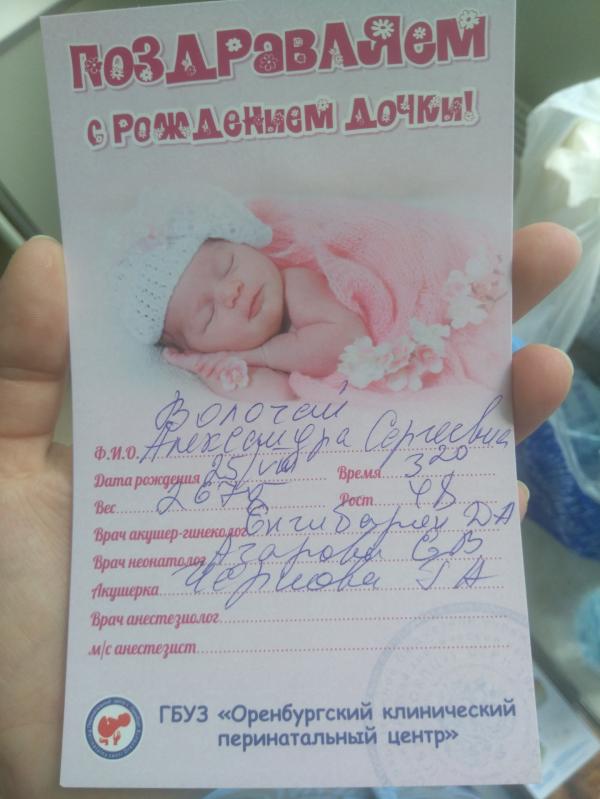 ПОЗДРАВЛЯЕМ
С РОЖДЕНИЕМ ДОЧКИ!
Волочай
Ф.И.О. Александра Сергеевна
Дата рождения 25/VIII Время 3 20
Вес 2675 Рост 48
Врач акушер-гинеколог Енгибарян ДА
Врач неонатолог Азарова ЕВ
Акушерка Чернова ГА
Врач анестезиолог
м/с анестезист
ГБУЗ «Оренбургский клинический
перинатальный центр»